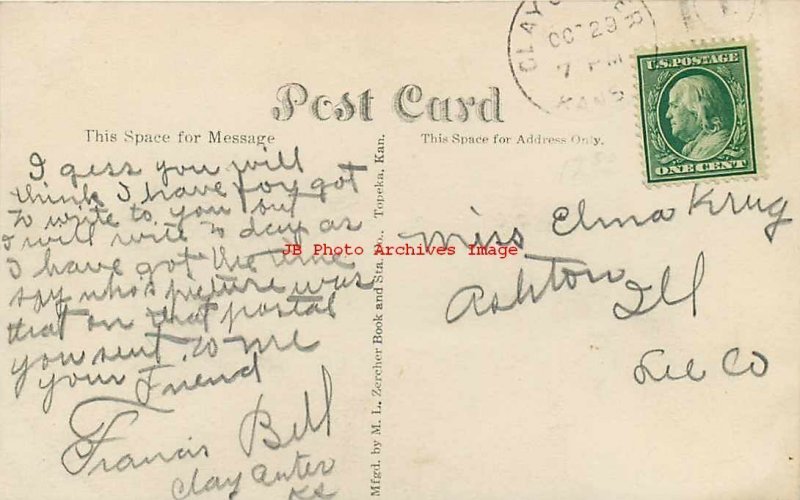 CLAY
OCT 29
7 PM
KANS
U.S. POSTAGE
ONE CENT
Post Card
This Space for Message
This Space for Address Only.
I gess you will
think I have forgot
to write to you but
I will write to day as
I have got the time
say who's picture was
that on that postal
you sent to me
your Friend
Francis Bell
Clay Center
Ks
Mfgd. by M. L. Zercher Book and Sta. Co., Topeka, Kan.
Miss Elma Krug
Ashton
Ill
Lee Co
JB Photo Archives Image